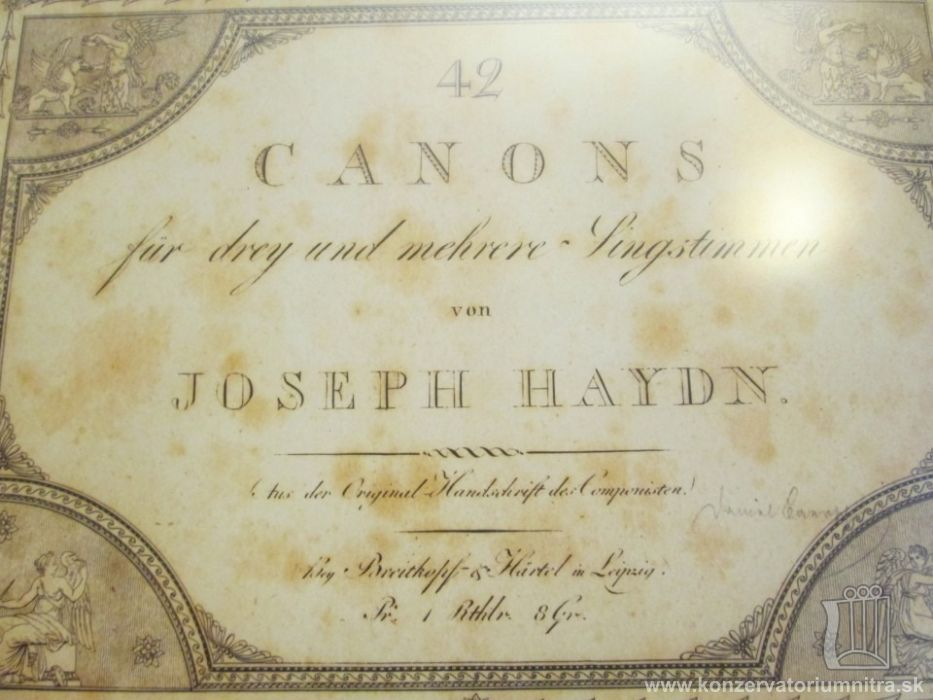 42
CANONS
für drey und mehrere Singstimmen
von
JOSEPH HAYDN.
(Aus der Original-Handschrift des Componisten.)
Bey Breitkopf & Härtel in Leipzig.
Pr. 1 Rthlr. 8 Gr.
www.konzervatoriumnitra.sk